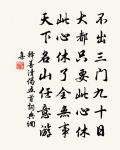 不出三門九十日
大都只要此心休
此心休了全無事
天下名山任意游
釋善清偈五首詞典網
集